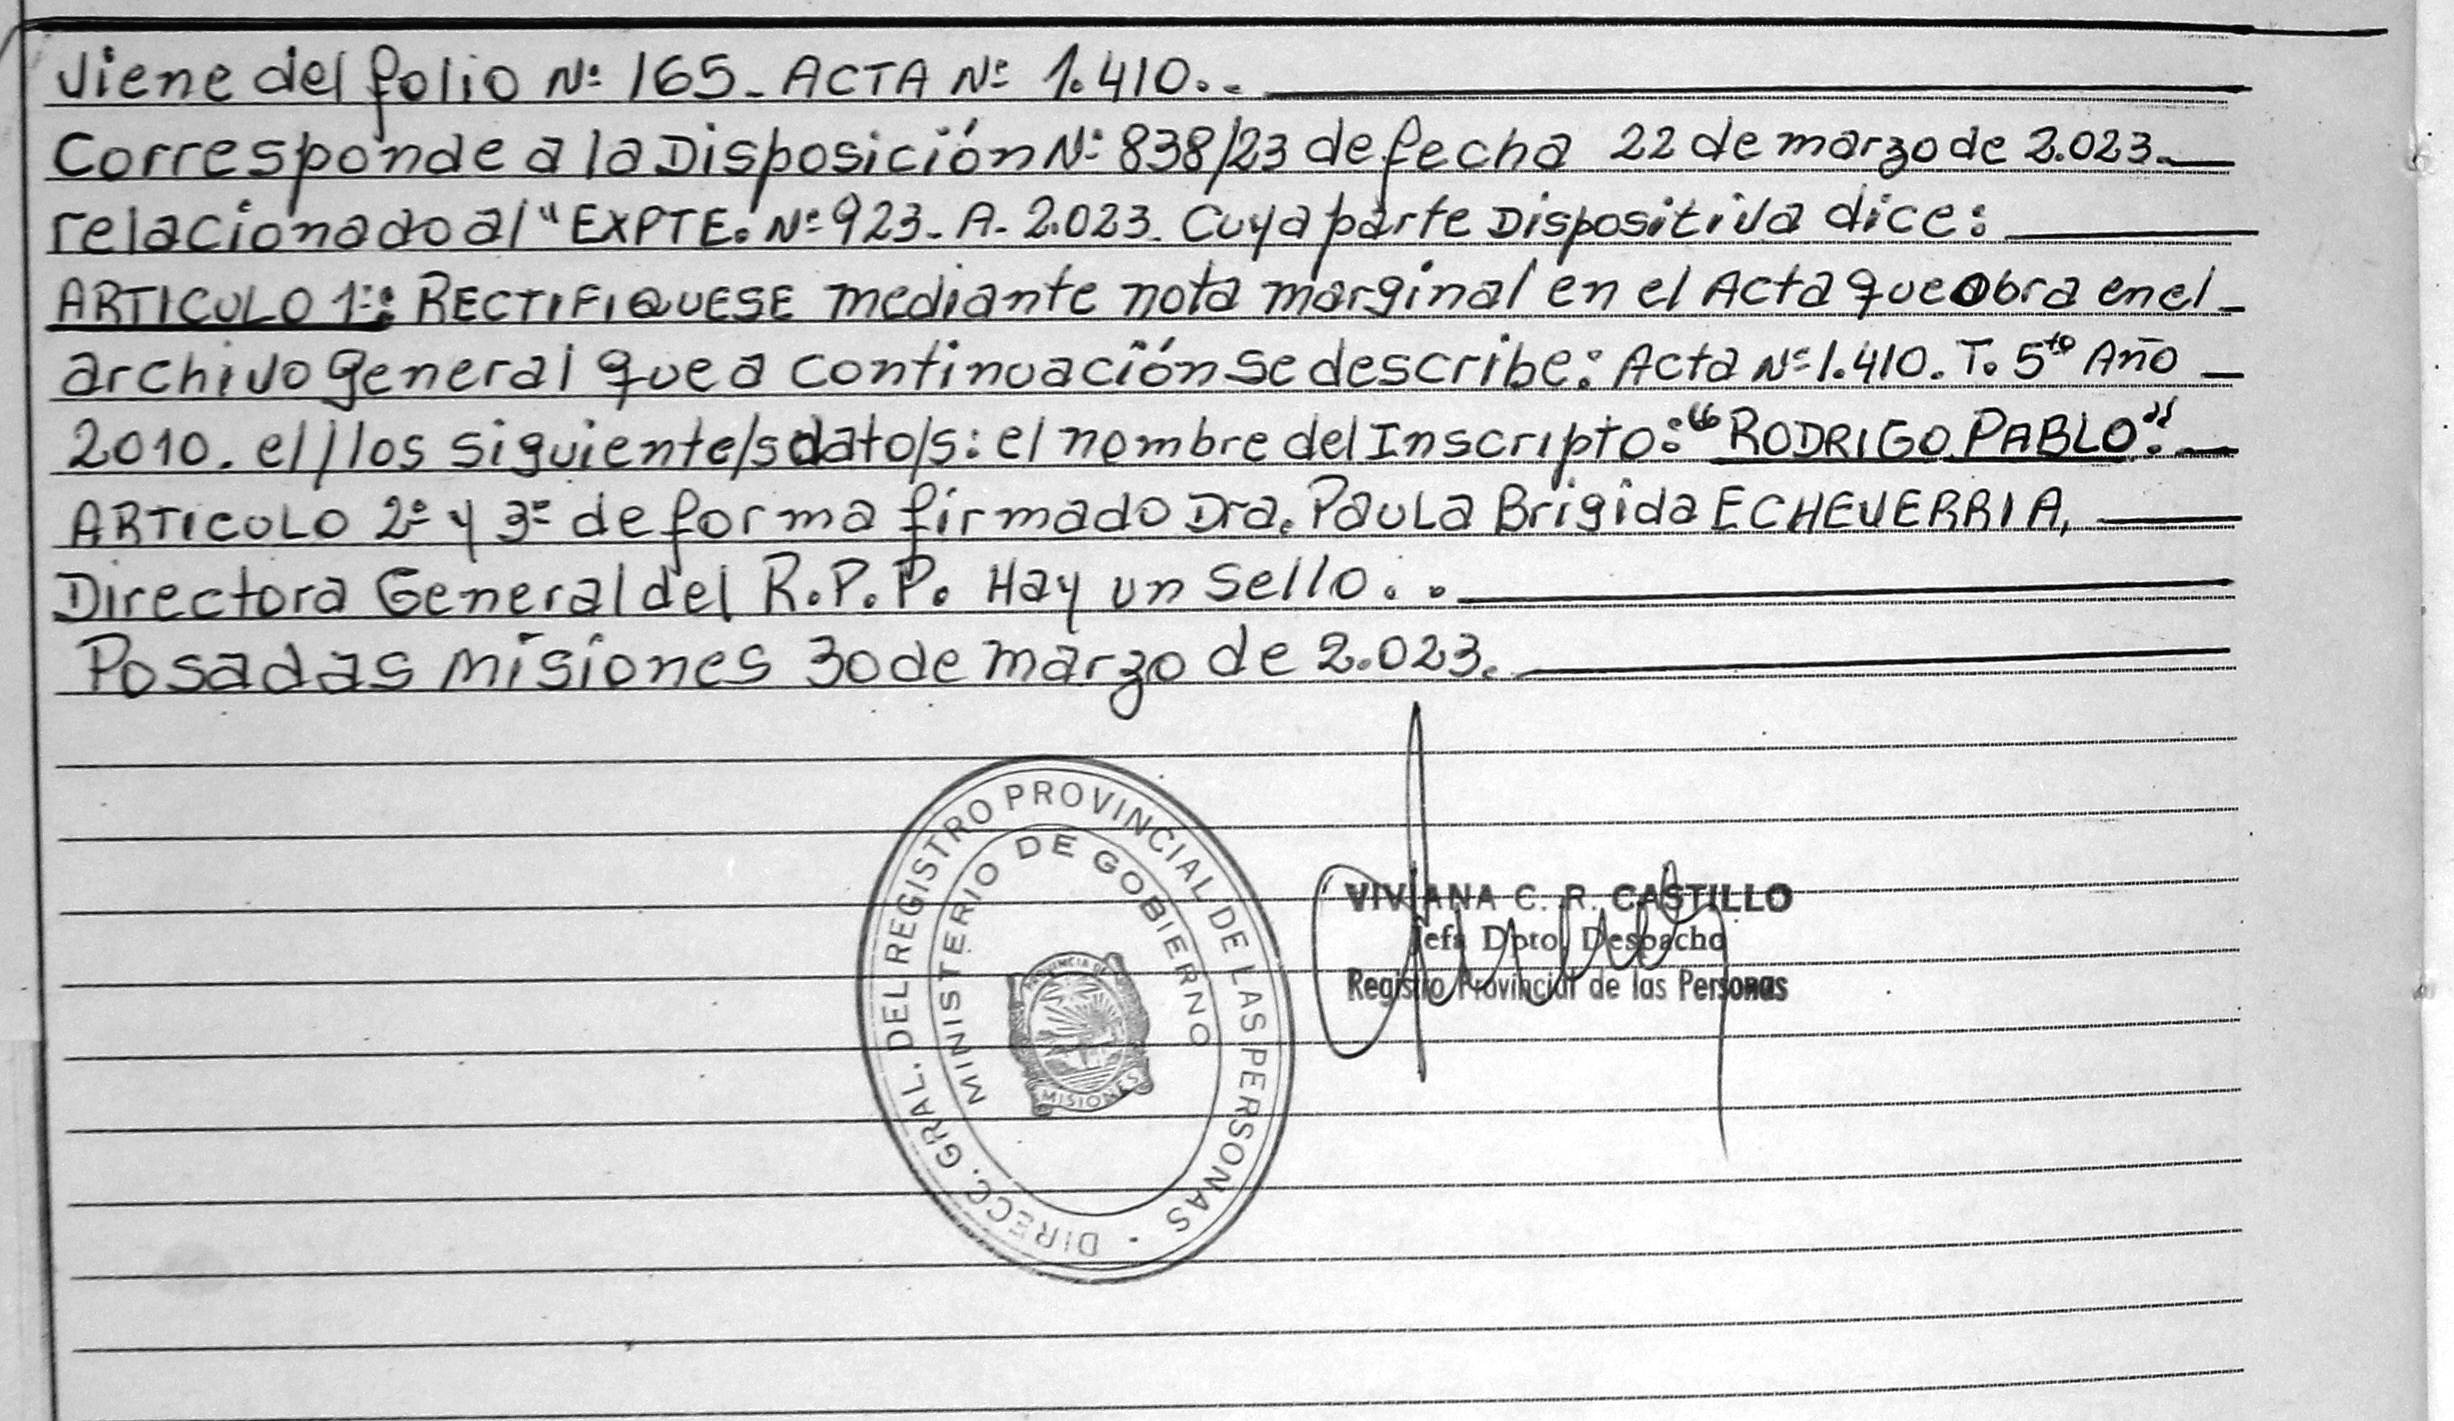 Viene del folio Nº 165- ACTA Nº 1.410..
Corresponde a la Disposición Nº 838/23 de fecha 22 de marzo de 2.023.
relacionado al "EXPTE. Nº 923- A- 2.023. Cuya parte Dispositiva dice:
ARTICULO 1º: RECTIFIQUESE mediante nota marginal en el Acta que obra en el -
archivo general que a continuación se describe: Acta Nº 1.410. T. 5to Año
2010. el/los siguiente/s dato/s: el nombre del Inscripto: "RODRIGO PABLO".
ARTICULO 2º y 3º de forma firmado Dra. Paula Brigida ECHEVERRIA,
Directora General del R.P.P. Hay un Sello..
Posadas Misiones 30 de marzo de 2.023.
DIRECC. GRAL. DEL REGISTRO PROVINCIAL DE LAS PERSONAS
MINISTERIO DE GOBIERNO
PROVINCIA DE
MISIONES
VIVIANA C. R. CASTILLO
Jefa Dpto. Despacho
Registro Provincial de las Personas